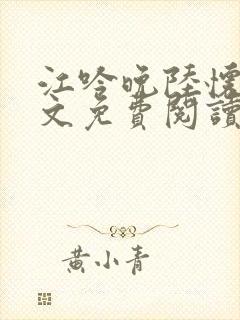 江吟晚陸懷
文免費閱讀
黃小青